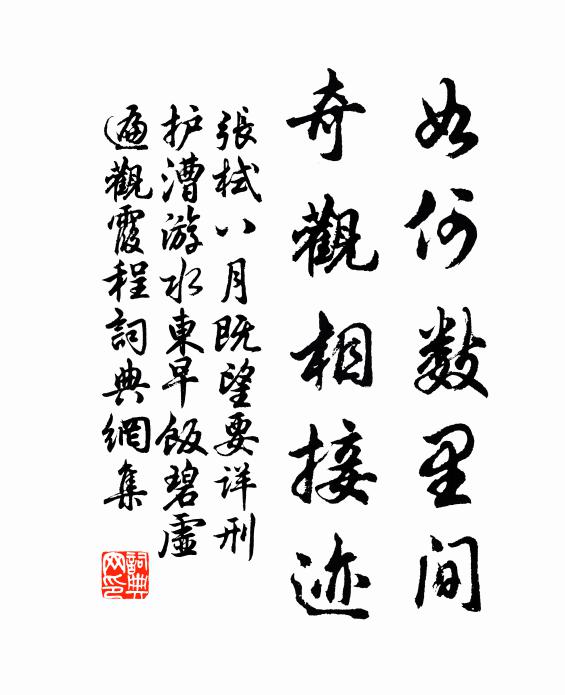 如何数里间
奇觀相接迹
張栻八月既望要详刑
护漕游水東早飯碧虚
遍觀霞程詞典網集
詞典网印